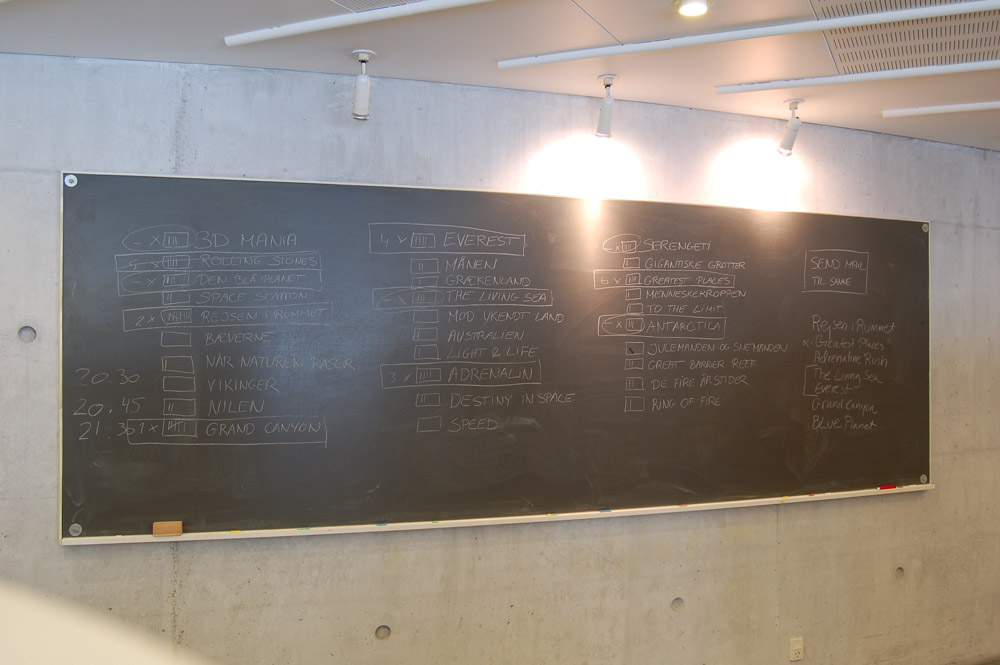 3D MANIA
ROLLING STONES
DEN BLÅ PLANET
SPACE STATION
2 x REJSEN I RUMMET
BÆVERNE
NÅR NATUREN RASER
20.30 VIKINGER
20.45 NILEN
21.30 1 x GRAND CANYON
4 x EVEREST
MÅNEN
GRÆKENLAND
THE LIVING SEA
MOD UKENDT LAND
AUSTRALIEN
LIGHT 2 LIFE
3 x ADRENALIN
DESTINY IN SPACE
SPEED
SERENGETI
GIGANTISKE GROTTER
6 x GREATEST PLACES
MENNESKEKROPPEN
TO THE LIMIT
ANTARCTICA
JULEMANDEN OG SNEMANDEN
GREAT BARRIER REEF
DE FIRE ÅRSTIDER
RING OF FIRE
SEND MAIL
TIL
Rejsen i Rummet
Greatest Places
Adrenaline Rush
The Living Sea
Everest
Grand Canyon
Blue Planet